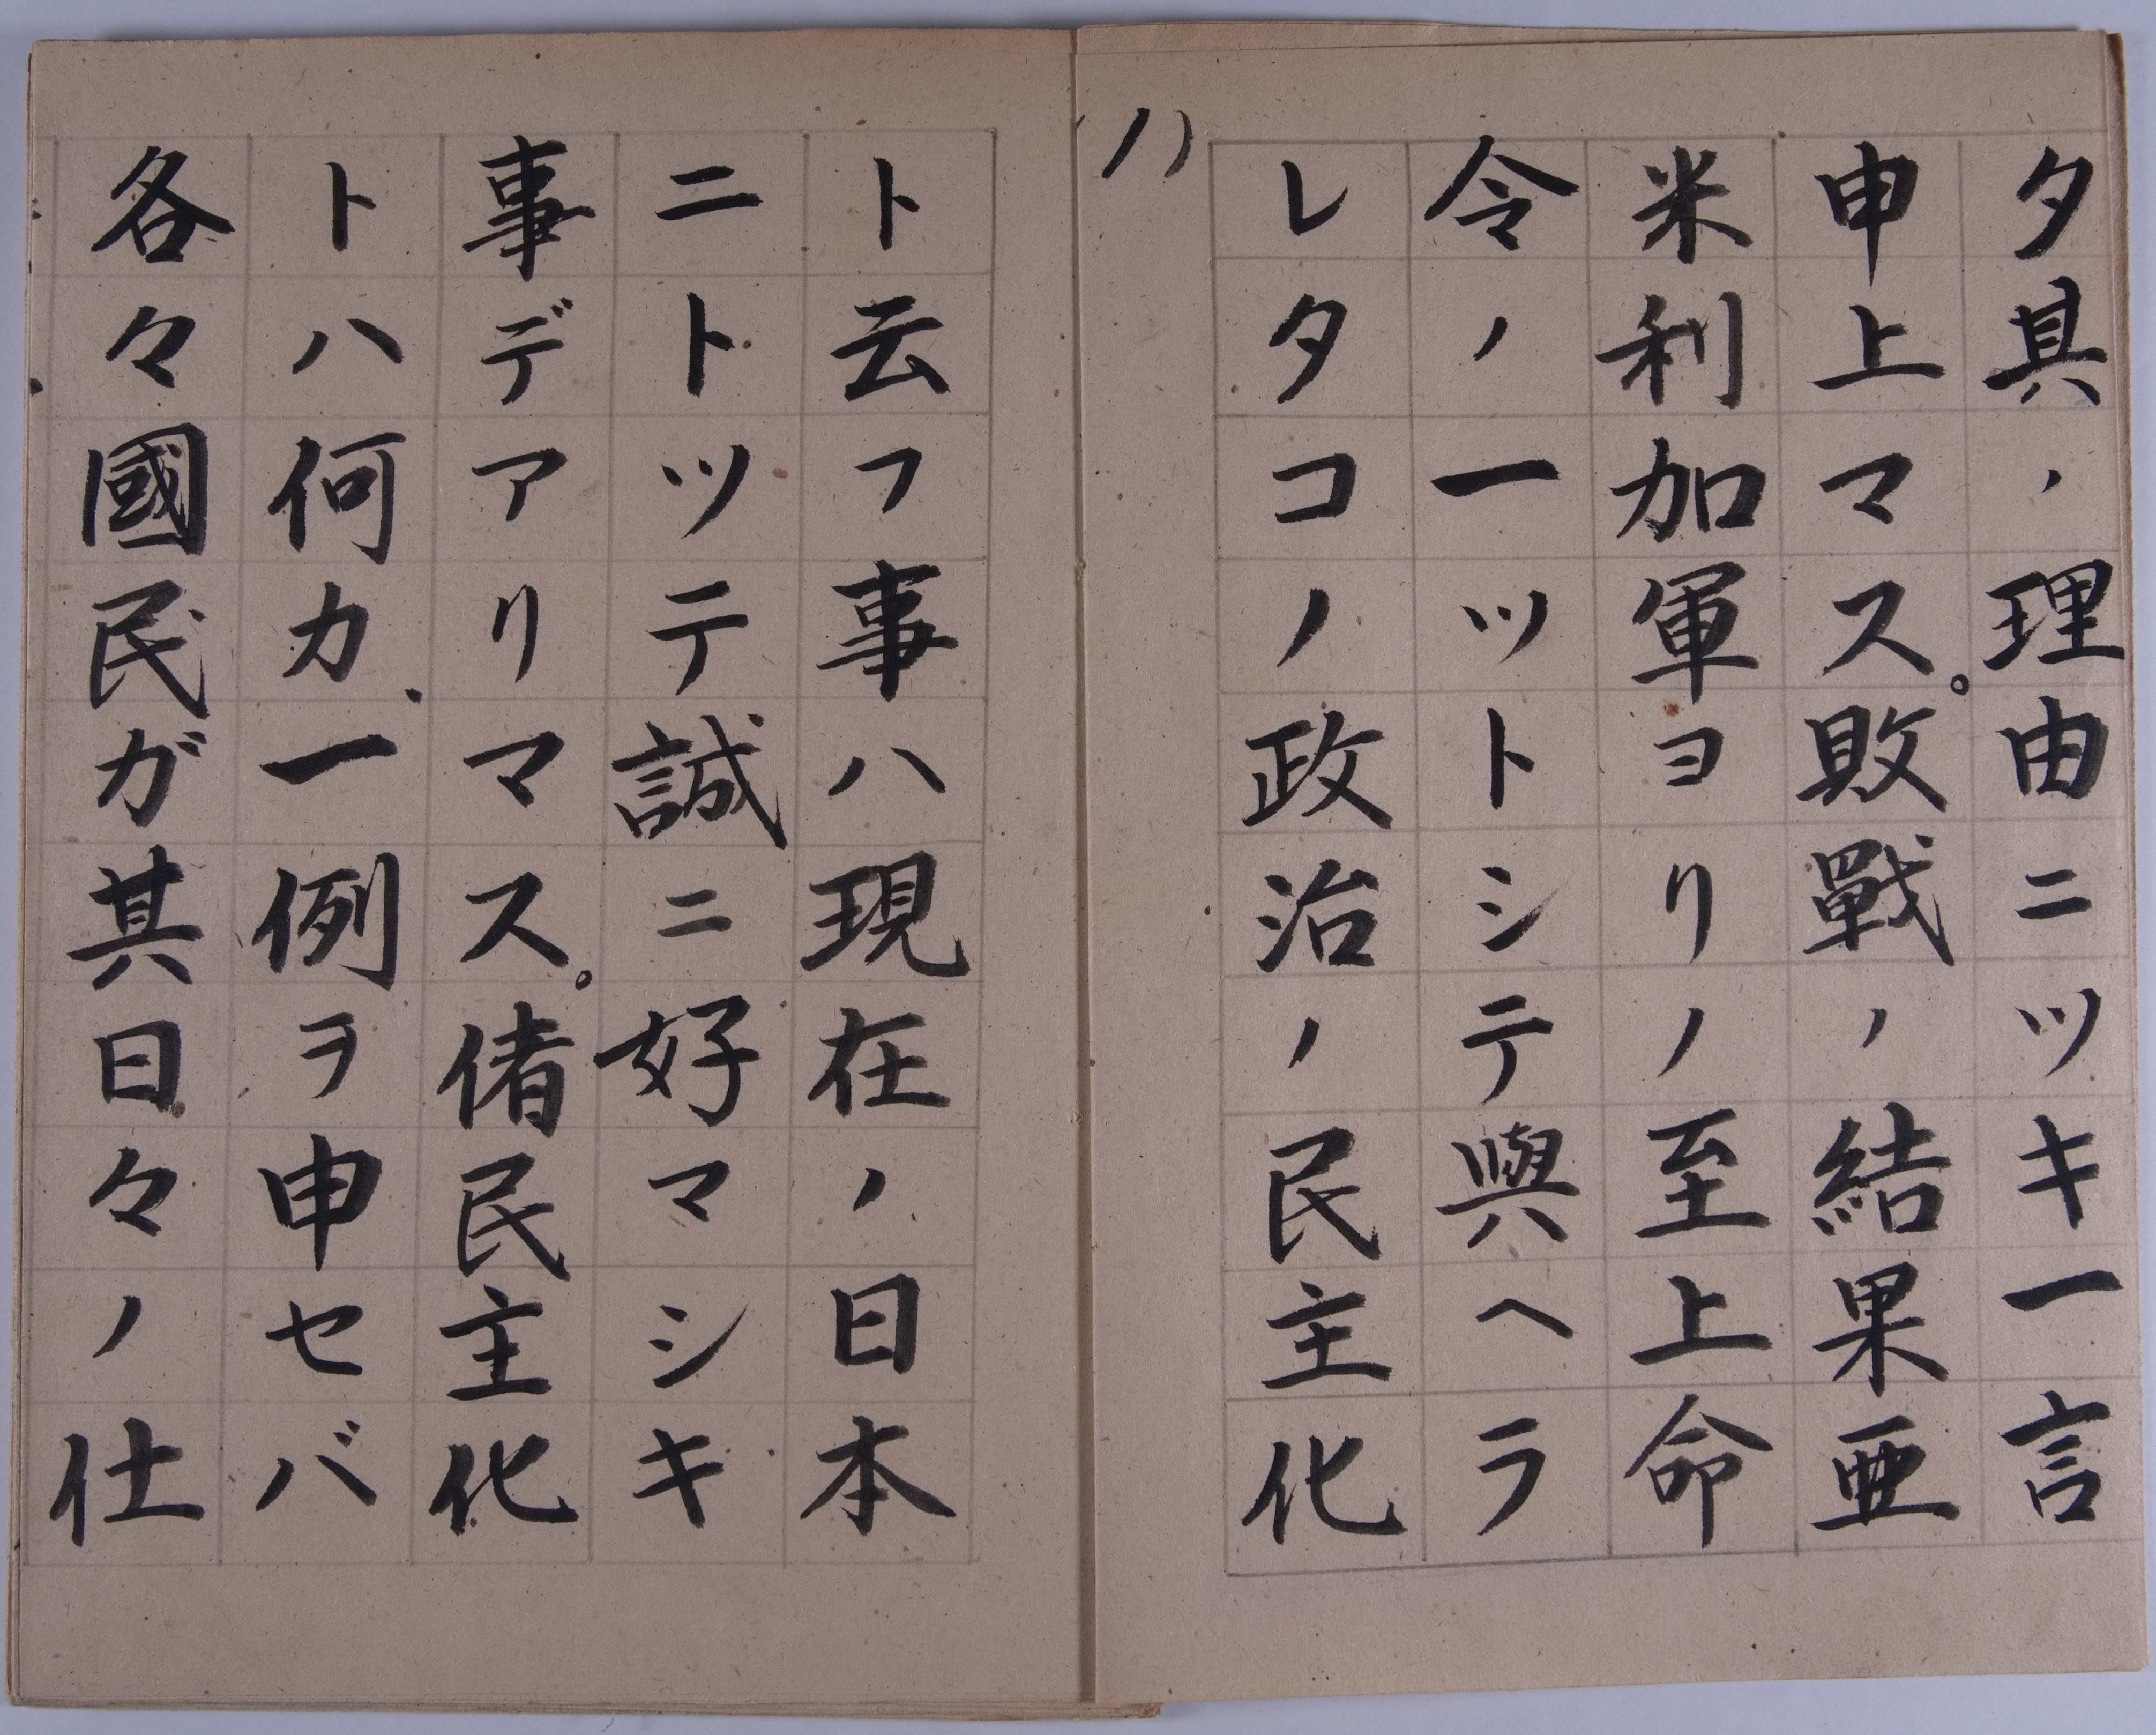 タ其ノ理由ニツキ一言
申上マス。敗戰ノ結果亜
米利加軍ヨリノ至上命
令ノ一ツトシテ與ヘラ
レタコノ政治ノ民主化
ハ
ト云フ事ハ現在ノ日本
ニトツテ誠ニ好マシキ
事デアリマス。偖民主化
トハ何カ、一例ヲ申セバ
各々國民ガ其日々ノ仕